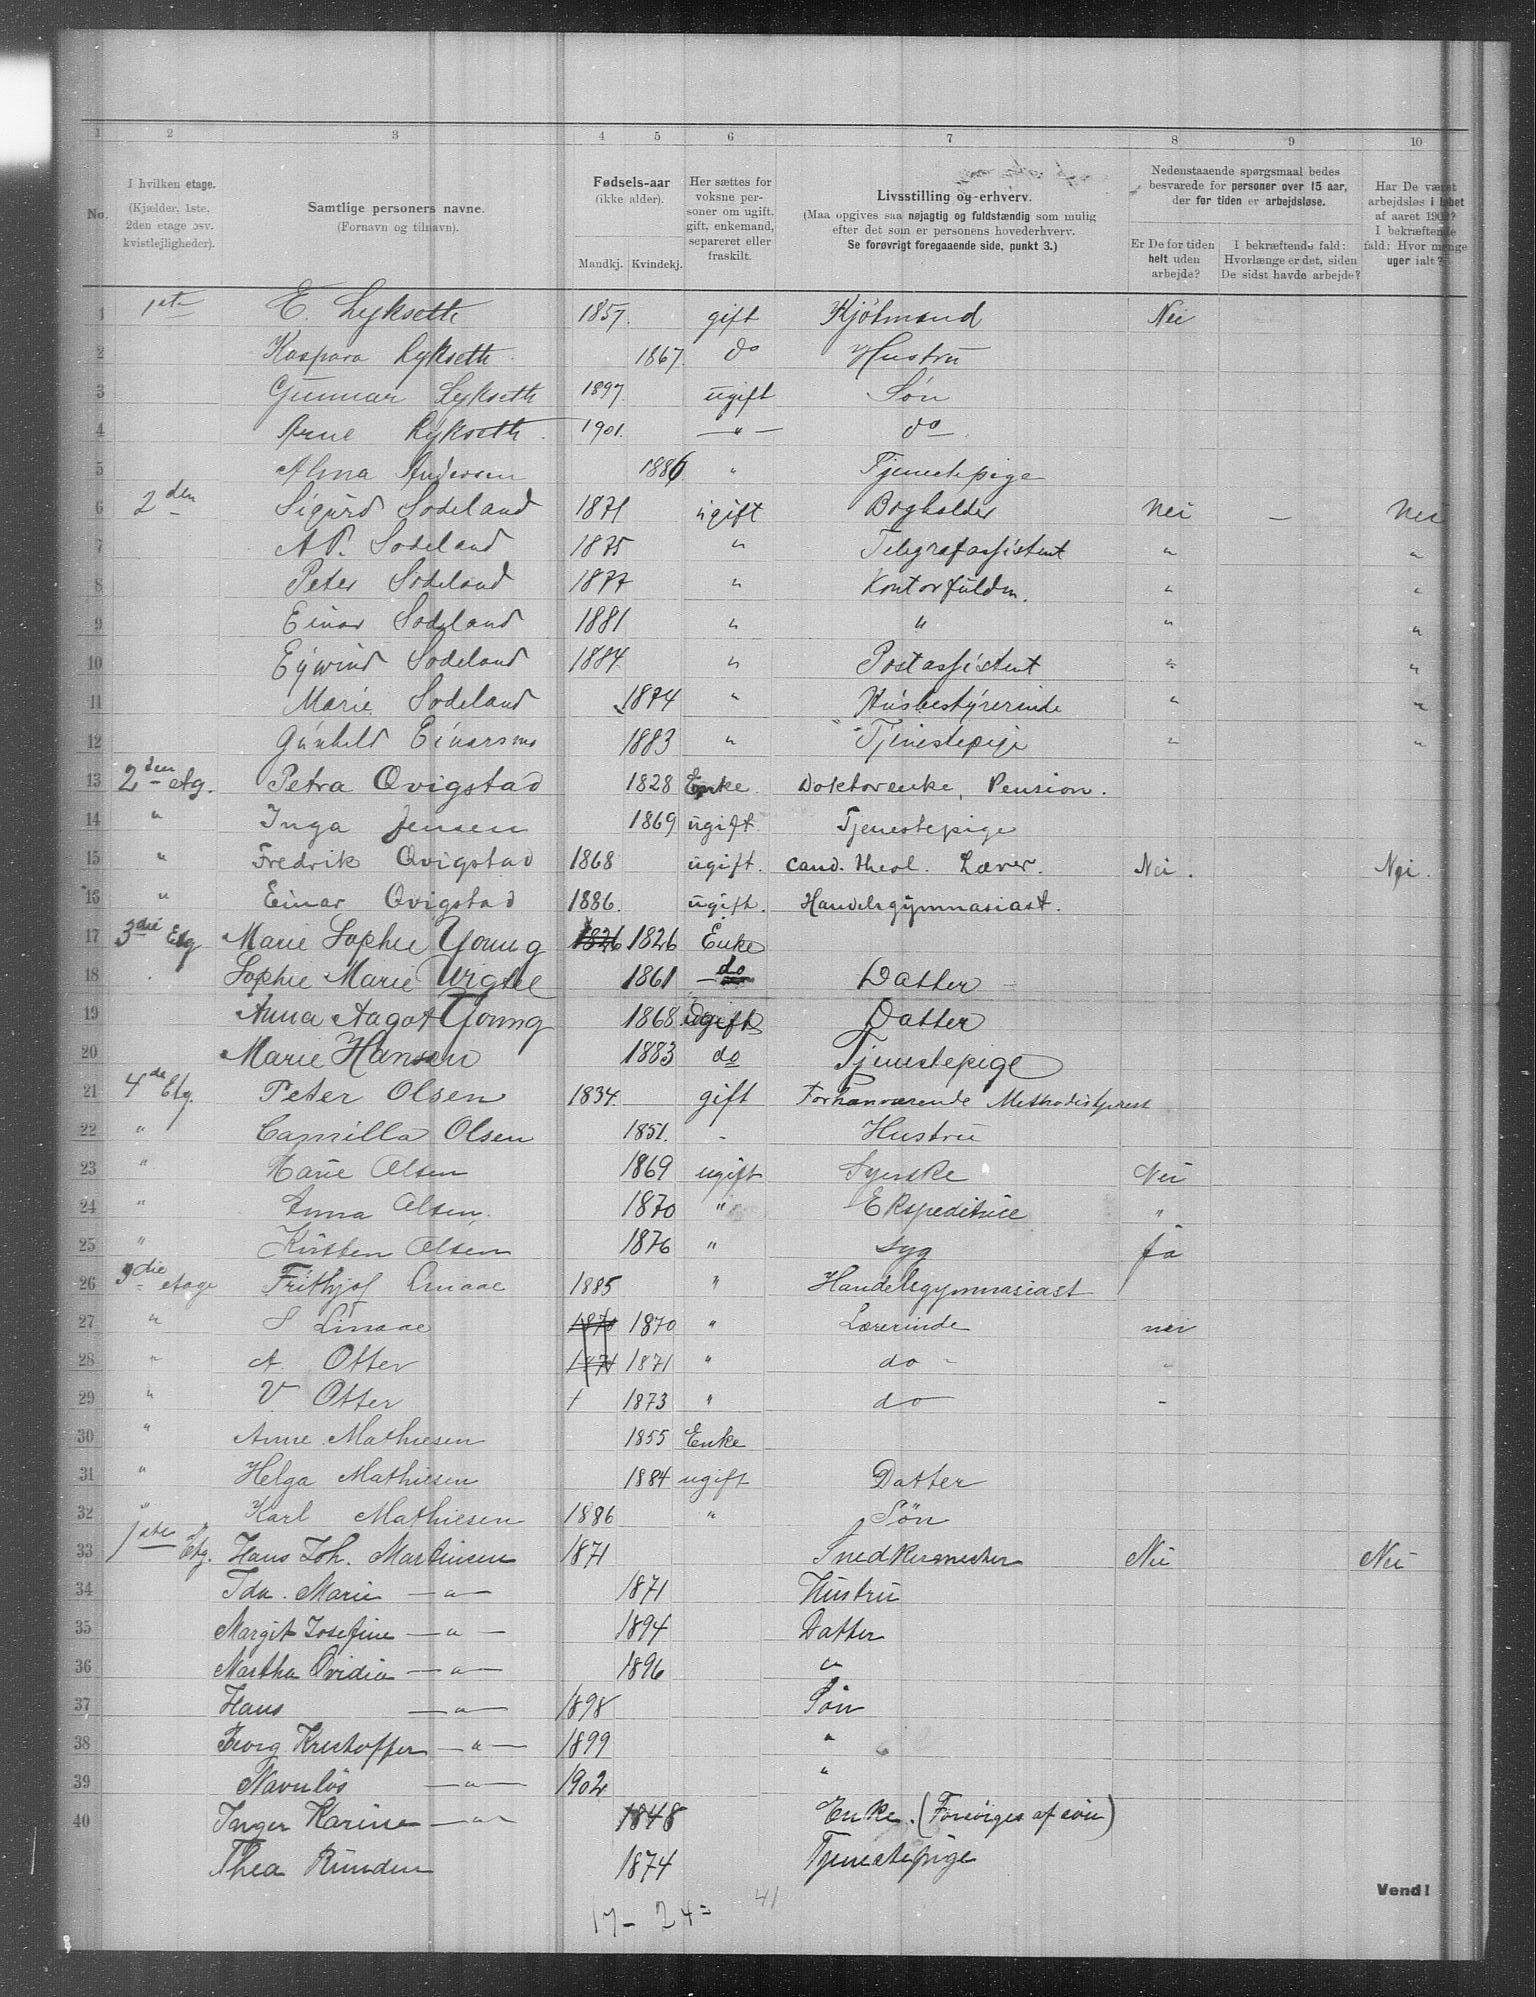 1 2 3 4 5 6 7 8 9 10
No.
I hvilken etage.
(Kjælder, 1ste,
2den etage osv.
kvistlejligheder).
Samtlige personers navne.
(Fornavn og tilnavn).
Fødsels-aar
(ikke alder).
Mandkj. Kvindekj.
Her sættes for
voksne per-
soner om ugift,
gift, enkemand,
separeret eller
fraskilt.
Livsstilling og erhverv.
(Maa opgives saa nøjagtig og fuldstændig som mulig
efter det som er personens hovederhverv.
Se forøvrigt foregaaende side, punkt 3.)
Nedenstaaende spørgsmaal bedes
besvarede for personer over 15 aar,
der for tiden er arbejdsløse.
Er De for tiden
helt uden
arbejde?
I bekræftende fald:
Hvorlænge er det, siden
De sidst havde arbejde?
Har De været
arbejdsløs i løbet
af aaret 1902?
I bekræftende
fald: Hvor mange
uger ialt?
1 1ste E. Lyksett 1857. gift Kjøtmand Nei
2 Kaspara Lyksett 1867. do Hustru
3 Gunnar Lyksett 1897. ugift Søn
4 Arne Lyksett 1901. — " — do
5 Alma Andersen 1886 " Tjenestepige
6 2den Sigurd Sødeland 1871 ugift Bogholder Nei — Nei
7 A.P. Sødeland 1875 " Telegrafassistent " "
8 Peter Sødeland 1877 " Kontorfuldm. " "
9 Einar Sødeland 1881 " " " "
10 Eyvind Sødeland 1884. " Postassistent " "
11 Marie Sødeland 1874 " Husbestyrerinde " "
12 Gunhild Einarsen 1883 " Tjenestepige " "
13 2den etg. Petra Qvigstad 1828 Enke. Doktorenke, Pension.
14 " Inga Jensen 1869 ugift. Tjenestepige
15 " Fredrik Qvigstad 1868 ugift. cand. theol. Lærer. Nei. Nei.
16 " Einar Qvigstad 1886. ugift. Handelsgymnasiast.
17 3die Etg Marie Sophie Young 1826 1826 Enke
18 Sophie Marie 1861 do Datter
19 Anna Aagot Young 1868 ugift Datter
20 Marie Hansen 1883 do Tjenestepige
21 4de Etg. Peter Olsen 1834. gift Forhenværende Methodistprest
22 " Camilla Olsen 1851. - Hustru
23 " Marie Olsen 1869 ugift Syerske Nei
24 " Anna Olsen. 1870 " Ekspeditrice "
25 " Kirsten Olsen 1876 " Syg ja
26 3die etage Frithjof Linaae 1885 " Handelsgymnasiast
27 " S Linaae 1870 1870 " Lærerinde nei
28 " A. Otter 1871 1871 " do - "
29 " V. Otter 1 1873 " do -
30 " Anne Mathiesen 1855 Enke
31 " Helga Mathiesen 1884 ugift Datter
32 " Karl Mathiesen 1886 " Søn
33 1ste Etg. Hans Joh. Martinsen 1871 Snedkermester Nei Nei
34 Ida Marie — " — 1871 Hustru
35 Margit Josefine — " — 1894 Datter
36 Martha Ovidia — " — 1896 "
37 Hans — " — 1898 Søn
38 Georg Kristoffer — " — 1899 "
39 Navnløs — " — 1902 "
40 Inger Karine — " — 1848 Enke. (Forsørges af søn)
Thea Runden 1874 Tjenestepige
Vend!
17 - 24 = 41